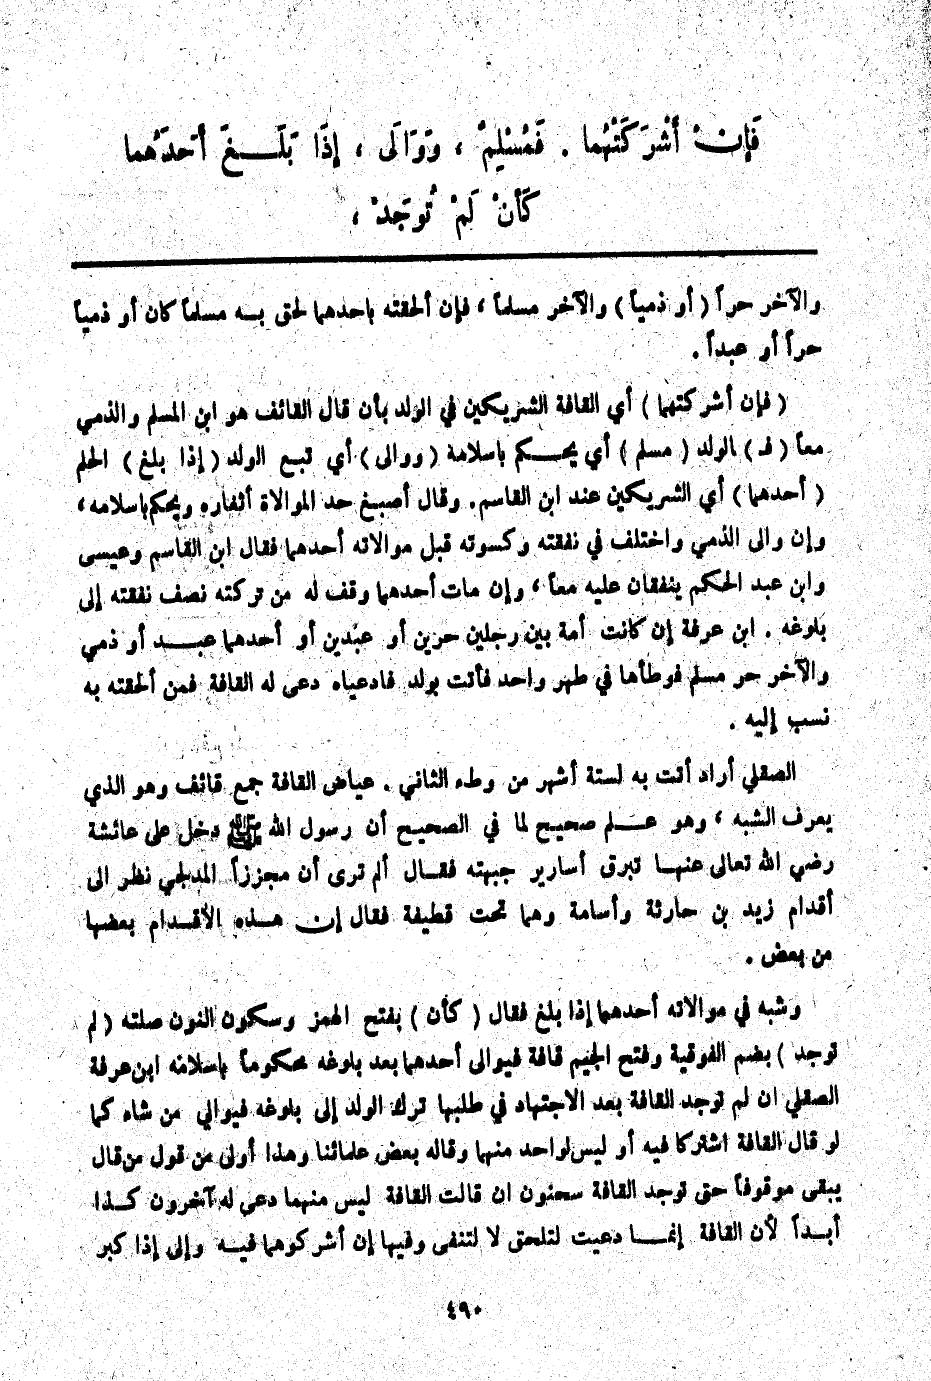 فَإِنْ أَشْرَكَتْهُما . فَمُسْلِمٌ ، وَوَالَى ، إِذَا بَلَـــغَ أَحَدَهُما
كَأَنْ لَمْ تُوجَدْ ،
والآخر حراً ( أو ذمياً ) والآخر مسلماً ، فإن ألحقته بأحدهما لحق بـه مسلماً كان أو ذمياً
حراً أو عبداً .
( فإن أشركتهما ) أي القافة الشريكين في الولد بأن قال القائف هو ابن المسلم والذمي
معاً ( فـ ) الولد ( مسلم ) أي يحـــكم باسلامة ( ووالى ) أي تبـع الولد ( إذا بلغ ) الحلم
( أحدهما ) أي الشريكين عند ابن القاسم. وقال أصبـغ حد الموالاة أثغاره ويحكم باسلامه ،
وإن والى الذمي واختلف في نفقته وكسوته قبل موالاته أحدهما فقال ابن القاسم وعيسى
وابن عبد الحكم ينفقان عليه معاً ، وإن مات أحدهما وقف له من تركته نصف نفقته إلى
بلوغه . ابن عرفة إن كانت أمة بين رجلين حرين أو عبدين أو أحدهما عبـــد أو ذمي
والآخر حر مسلم فوطأها في طهر واحد فأتت بولد فادعياه دعى له القافة فمن ألحقته به
نسب إليه .
الصقلي أراد أتت به لستة أشهر من وطء الثاني . عياض القافة جمع قائف وهو الذي
يعرف الشبه ، وهو عـــلم صحيح لما في الصحيح أن رسول الله ﷺ دخل على عائشة
رضي الله تعالى عنهـا تبرق أسارير جبهته فقـال ألم ترى أن مجززاً المدلجي نظر الى
أقدام زيد بن حارثة وأسامة وهما تحت قطيفة فقال إن هـذه الأقـدام بعضها
من بعض .
وشبه في موالاته أحدهما إذا بلغ فقال ( كأن ) بفتح الهمز وسكون النون صلته ( لم
توجد ) بضم الفوقية وفتح الجيم قافة فيوالى أحدهما بعد بلوغه محكوماً باسلامه ابن عرفة
الصقلي ان لم توجد القافة بعد الاجتهاد في طلبها ترك الولد إلى بلوغه فيوالي من شاء كما
لو قال القافة اشتركا فيه أو ليس لواحد منهما وقاله بعض علمائنا وهذا أولى من قول من قال
يبقى موقوفاً حتى توجد القافة سحنون ان قالت القافة ليس منهما دعى له آخرون كـذا
أبـداً لأن القافة إنمـــا دعيت لتلحق لا لتنفى وفيها إن أشركوهما فيـه وإلى إذا كبر
٤٩٠